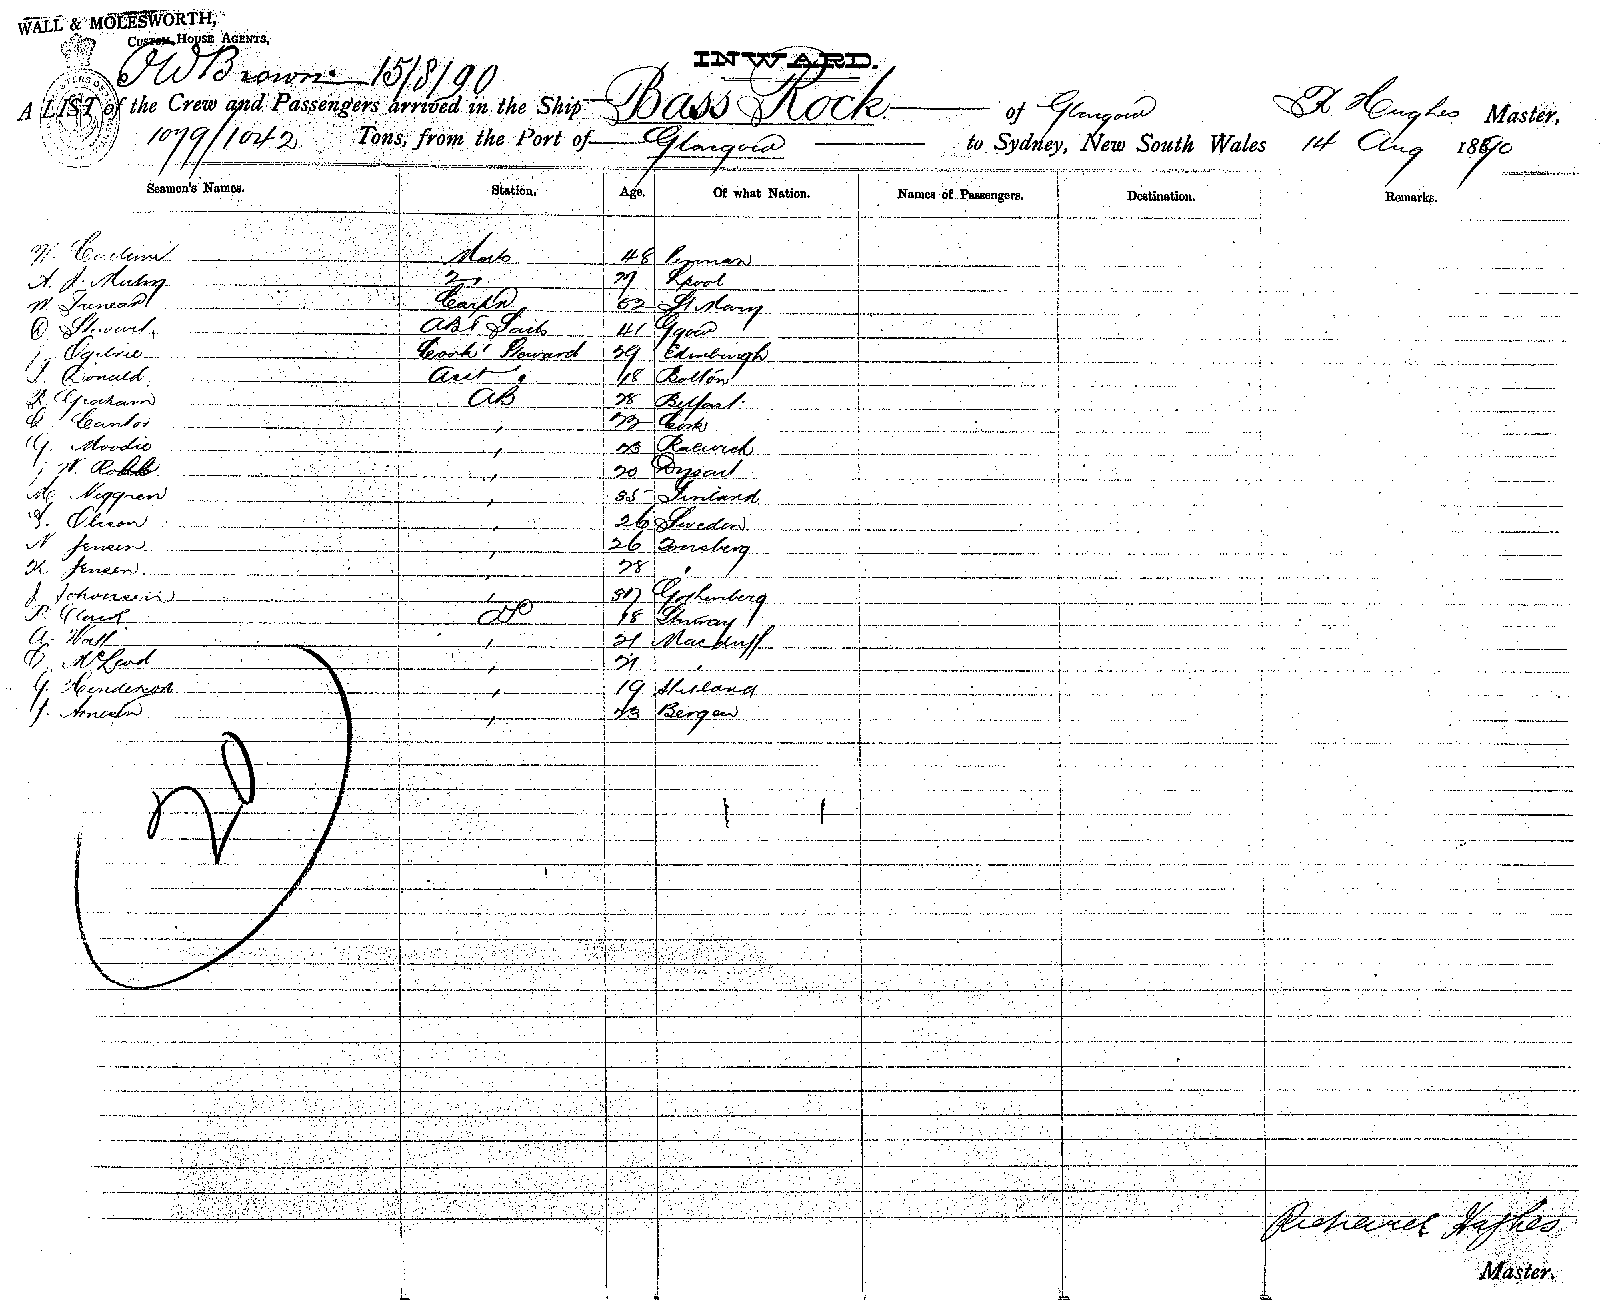 WALL & MOLESWORTH,
CUSTOM HOUSE AGENTS,
INWARD.
Brown 15/8/90
A LIST of the Crew and Passengers arrived in the Ship Bass Rock of Glasgow R Hughes Master,
1079/1042 Tons, from the Port of Glasgow to Sydney, New South Wales 14 Aug 1890
Seamen's Names. Station. Age. Of what Nation. Names of Passengers. Destination. Remarks.
Mate 48
29 Lpool
W. Carpr 52 St Mary
Stewart AB & Sails 41 Ggow
J. Ogilvie Cook & Steward 29 Edinburgh
J. Ronald Asst " 18 Bolton
R Graham AB 28 Belfast
C Cantor " Cork
G. Moodie " 23
J W. Robb " 20 Dysart
M Niggren " 35 Finland
Olsson " 26 Sweden
N Jensen " 26 Tonsberg
K Jensen " 28 "
J " 37 Gothenberg
P. Clark OS 18
A. Watt " 21 Macduff
McLeod " 21 "
G. Henderson " 19 Shetland
J. " 23 Bergen
20
Richard Hughes
Master.